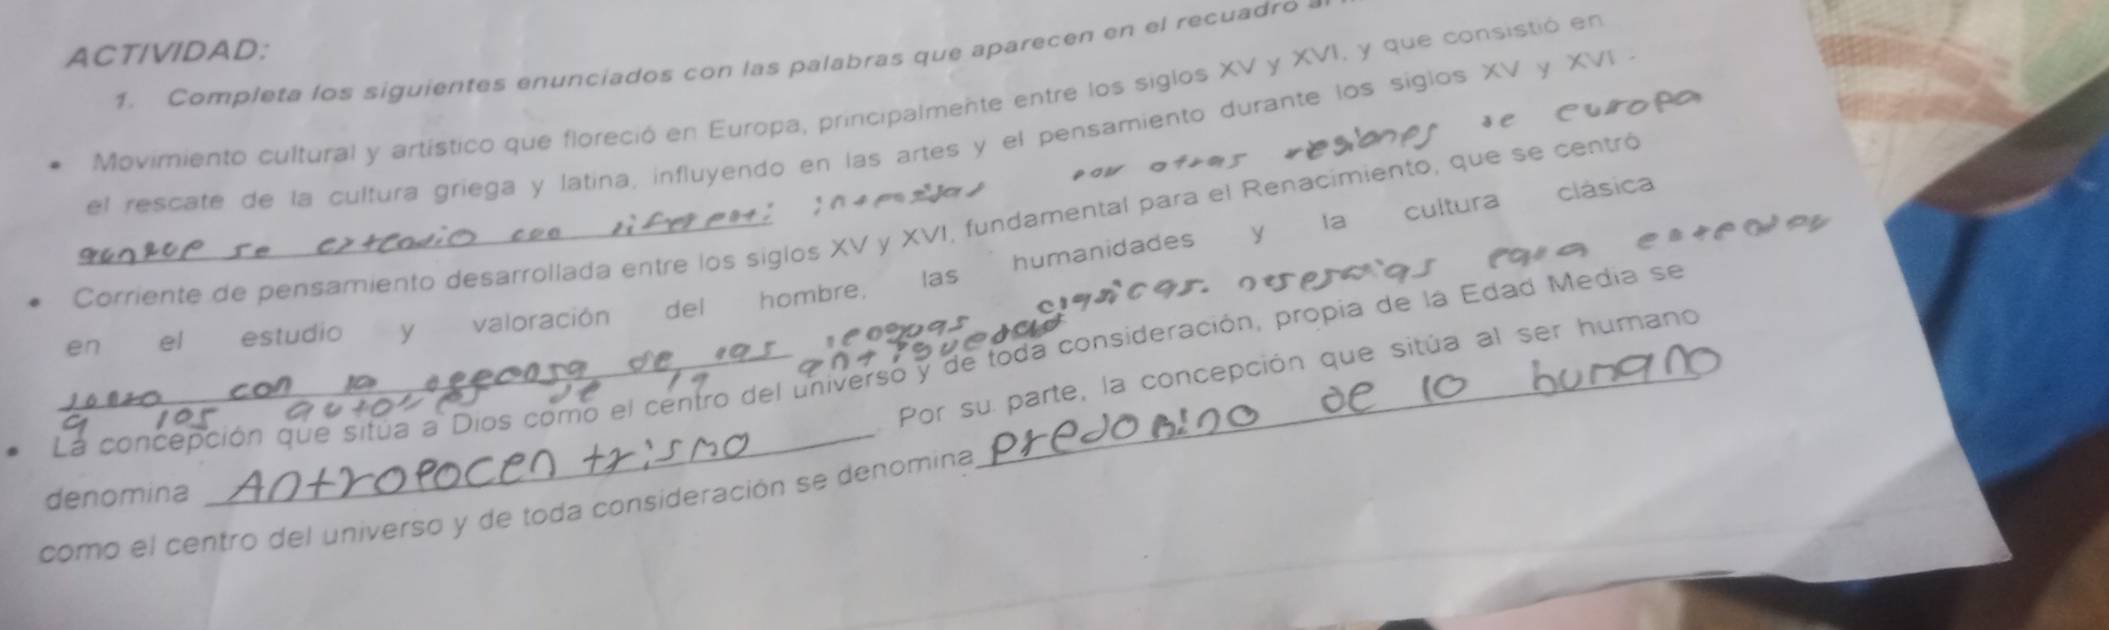 ACTIVIDAD:
1. Completa los siguientes enunciados con las palabras que aparecen en el recuadro
• Movimiento cultural y artístico que floreció en Europa, principalmente entre los siglos XV y XVI, y que consistió en
el rescate de la cultura griega y latina, influyendo en las artes y el pensamiento durante los siglos XV y XVI.
se por otras regiones de europa
• Corriente de pensamiento desarrollada entre los siglos XV y XVI, fundamental para el Renacimiento, que se centró
en el estudio y valoración del hombre, las humanidades y la cultura clásica
con la de las lenguas clasicas. para
a los de la antiguedad
• La concepción que sitúa a Dios como el centro del universo y de toda consideración, propia de la Edad Media se
denomina Antropocentrismo. Por su parte, la concepción que sitúa al ser humano
como el centro del universo y de toda consideración se denomina predomino de lo humano